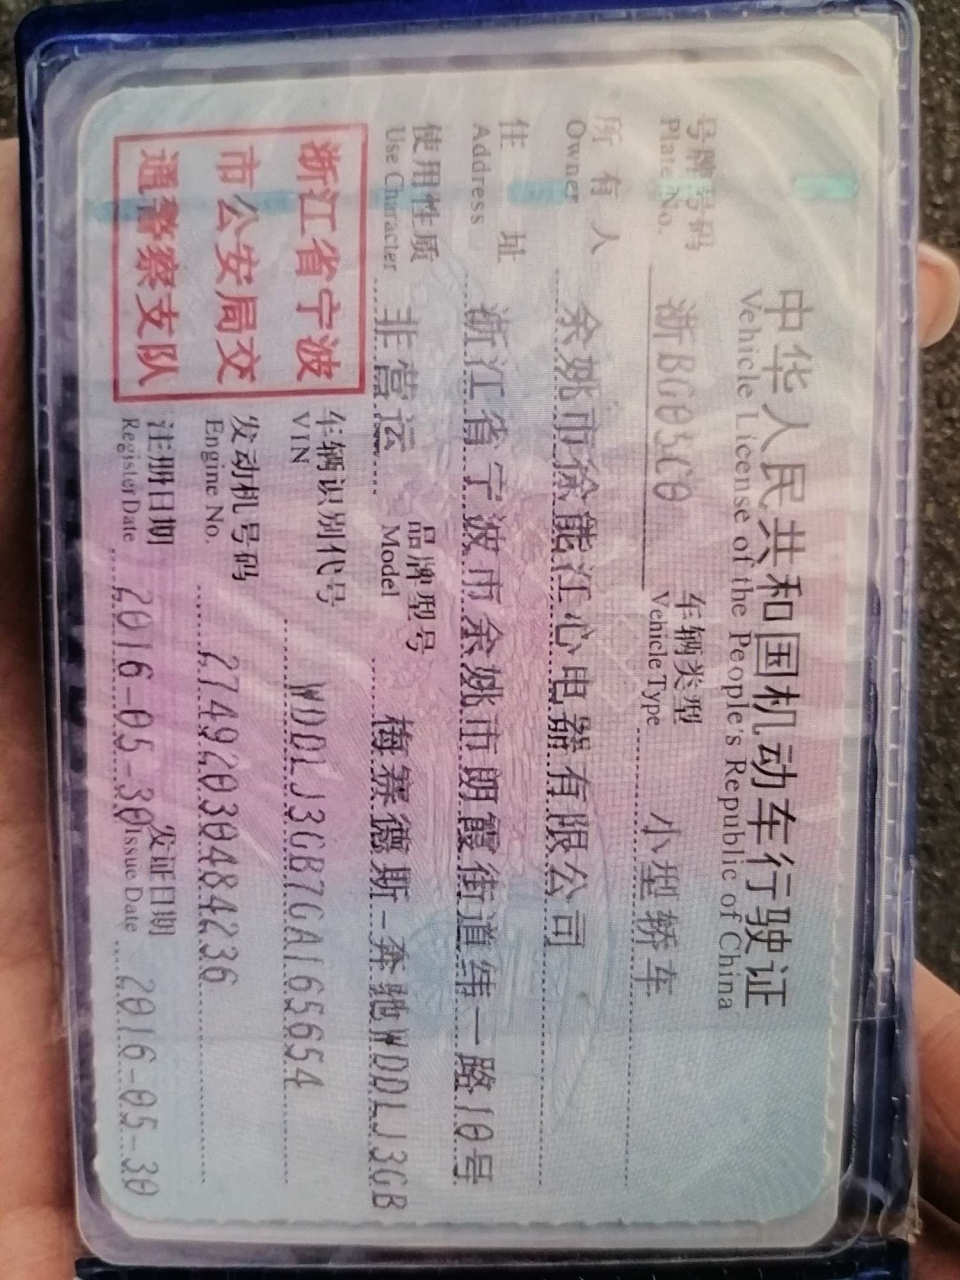 中华人民共和国机动车行驶证
Vehicle License of the People's Republic of China
号牌号码 浙BG05C0 车辆类型 小型轿车
Plate No. Vehicle Type
所有人 余姚市徐能江心电器有限公司
Owner
住址 浙江省宁波市余姚市朗霞街道纬一路10号
Address
使用性质 非营运 品牌型号 梅赛德斯-奔驰WDDLJ3GB
Use Character Model
浙江省宁波
市公安局交
通警察支队
车辆识别代号 WDDLJ3GB7GA165654
VIN
发动机号码 27492030484236
Engine No.
注册日期 2016-05-30 发证日期 2016-05-30
Register Date Issue Date